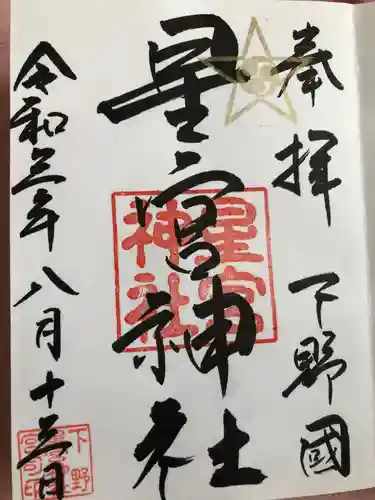 奉拝 下野國
星宮神社
星宮
神社
令和三年八月十三日